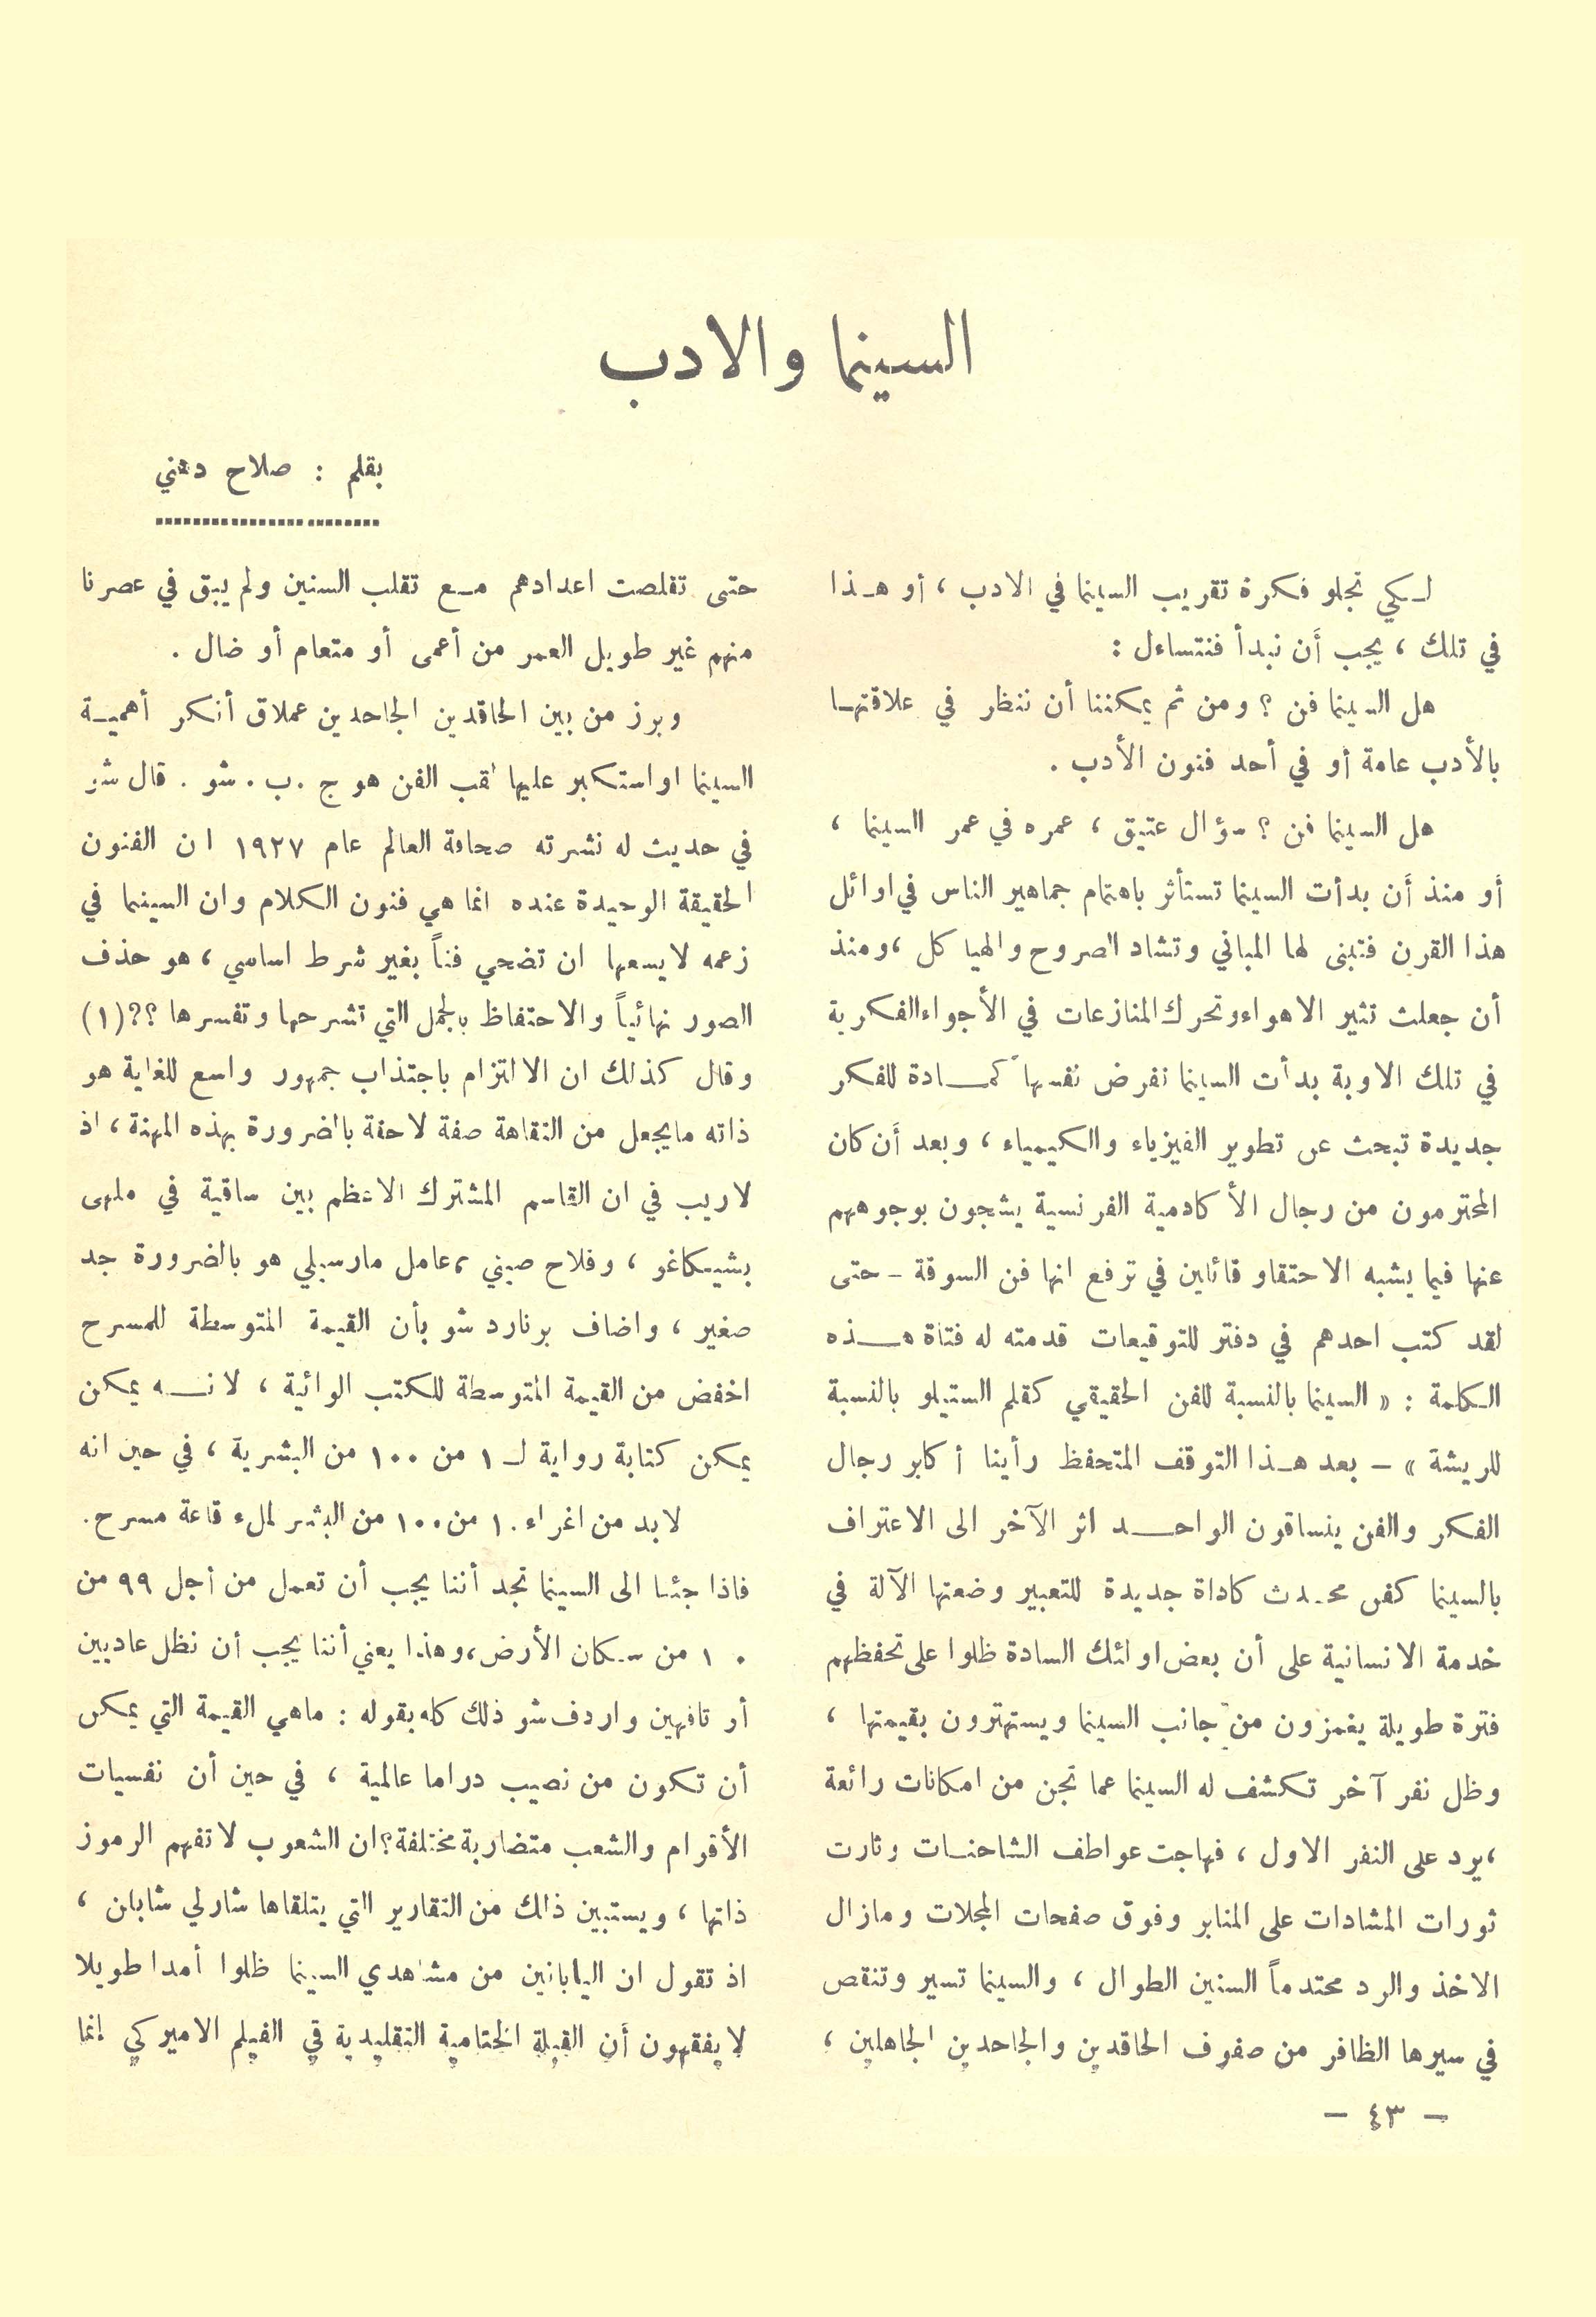 السينما والادب
بقلم : صلاح دهني
لكي نجلو فكرة تقريب السينما في الادب ، أو هذا
في تلك ، يجب أن نبدأ فنتساءل :
هل السينما فن ؟ ومن ثم يمكننا أن ننظر في علاقتها
بالأدب عامة أو في أحد فنون الأدب .
هل السينما فن ؟ سؤال عتيق ، عمره في عمر السينما ،
أو منذ أن بدأت السينما تستأثر باهتمام جماهير الناس في اوائل
هذا القرن فتبنى لها المباني وتشاد الصروح والهياكل ،ومنذ
أن جعلت تثير الاهواء وتحرك المنازعات في الأجواء الفكرية
في تلك الاوبة بدأت السينما تفرض نفسها كمادة للفكر
جديدة تبحث عن تطوير الفيزياء والكيمياء ، وبعد أن كان
المحترمون من رجال الأكادمية الفرنسية يشجون بوجوههم
عنها فيما يشبه الاحتقاو قائلين في ترفع انها فن السوقة - حتى
لقد كتب احدهم في دفتر للتوقيعات قدمته له فتاة هذه
الكلمة : « السينما بالنسبة للفن الحقيقي كقلم الستيلو بالنسبة
للريشة » - بعد هذا التوقف المتحفظ رأينا أكابر رجال
الفكر والفن ينساقون الواحد اثر الآخر الى الاعتراف
بالسينما كفن محدث كاداة جديدة للتعبير وضعتها الآلة في
خدمة الانسانية على أن بعض اولئك السادة ظلوا على تحفظهم
فترة طويلة يغمزون من جانب السينما ويستهترون بقيمتها ،
وظل نفر آخر تكشف له السينما عما تجن من امكانات رائعة
،يرد على النفر الاول ، فهاجت عواطف الشاحنات وثارت
ثورات المشادات على المنابر وفوق صفحات المجلات ومازال
الاخذ والرد محتدماً السنين الطوال ، والسينما تسير وتنقص
في سيرها الظافر من صفوف الحاقدين والجاحدين الجاهلين ،
حتى تقلصت اعدادهم مع تقلب السنين ولم يبق في عصرنا
منهم غير طويل العمر من أعمى أو متعام أو ضال .
وبرز من بين الحاقدين الجاحدين عملاق أنكر أهمية
السينما او استكبر عليها لقب الفن هو ج . ب . شو . قال شو
في حديث له نشرته صحافة العالم عام ١٩٢٧ ان الفنون
الحقيقة الوحيدة عنده انما هي فنون الكلام وان السينما في
زعمه لا يسعها ان تضحي فناً بغير شرط اساسي ، هو حذف
الصور نهائياً والاحتفاظ بالجمل التي تشرحها وتفسرها ؟؟(١)
وقال كذلك ان الالتزام باجتذاب جمهور واسع للغاية هو
ذاته مايجعل من التفاهة صفة لاحقة بالضرورة بهذه المهنة ، اذ
لاريب في ان القاسم المشترك الاعظم بين ساقية في ملهى
بشيكاغو ، وفلاح صيني ،عامل مارسيلي هو بالضرورة جد
صغير ، واضاف برنارد شو بأن القيمة المتوسطة للمسرح
اخفض من القيمة المتوسطة للكتب الوائية ، لانه يمكن
يمكن كتابة رواية لـ ١ من ١٠٠ من البشرية ، في حين انه
لابد من اغراء ١٠ من ١٠٠ من البشر لملء قاعة مسرح.
فاذا جئنا الى السينما نجد أننا يجب أن تعمل من أجل ٩٩ من
١٠ من سكان الأرض،وهذا يعني أننا يجب أن نظل عاديين
أو تافهين واردف شو ذلك كله بقوله : ماهي القيمة التي يمكن
أن تكون من نصيب دراما عالمية ، في حين أن نفسيات
الأقرام والشعب متضاربة مختلفة؟ ان الشعوب لا تفهم الرموز
ذاتها ، ويستبين ذلك من التقارير التي يتلقاها شارلي شابلن ،
اذ تقول ان اليابانين من مشاهدي السينما ظلوا أمدا طويلا
لا يفقهون أن القبلة الختامية التقليدية في الفيلم الاميركي إنما
- ٤٣ -